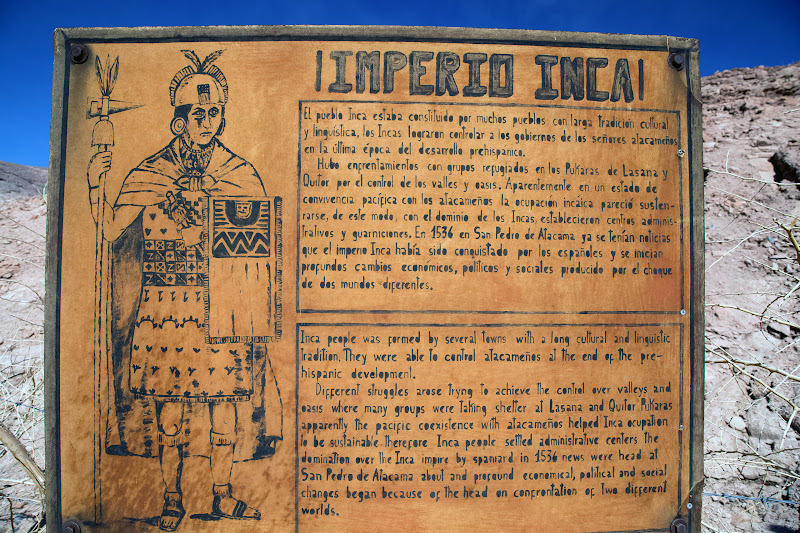 IMPERIO INCA
El pueblo Inca estaba constituido por muchos pueblos con larga tradición cultural
y lingüística, los Incas lograron controlar a los gobiernos de los señores atacameños
en la última época del desarrollo prehispánico.
Hubo encrentamientos con grupos refugiados en los Pukaras de Lasana y
Quitor por el control de los valles y oasis. Aparentemente en un estado de
convivencia pacífica con los atacameños la ocupación incaica pareció susten-
rarse, de este modo, con el dominio de los Incas establecieron centros adminis-
trativos y guarniciones. En 1536 en San Pedro de Atacama ya se tenían noticias
que el imperio Inca había sido conquistado por los españoles y se inician
profundos cambios económicos, políticos y sociales producido por el choque
de dos mundos diferentes.
Inca people was formed by several towns with a long cultural and linguistic
tradition. They were able to control atacameños at the end of the pre-
hispanic development.
Different struggles arose tryng to achieve the control over valleys and
oasis where many groups were taking shelter at Lasana and Quitor Pukaras
apparently the pacific coexistence with atacameños helped Inca ocupation
to be sustainable. Therefore Inca people settled administrative centers the
domination over the Inca impire by spaniard in 1536 news were head at
San Pedro de Atacama about and profound economical, political and social
changes began because of the head on confrontation of two different
worlds.